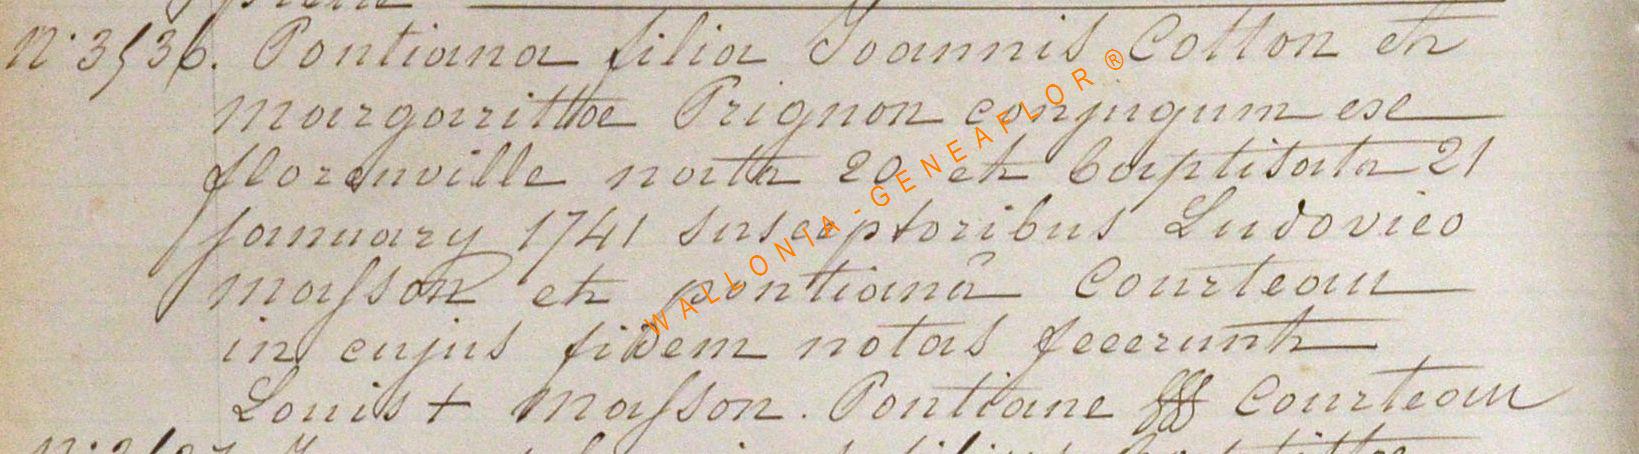 N° 3536. Pontiana filia Joannis Cotton et
Margarittae Prignon conjugum ex
florenville nata 20 et baptisata 21
january 1741 susceptoribus Ludovico
masson et pontianâ Courteau
in cujus fidem notas fecerunt
Louis + Masson. Pontiane Courteau
WALLONIA-GENEAFLOR®